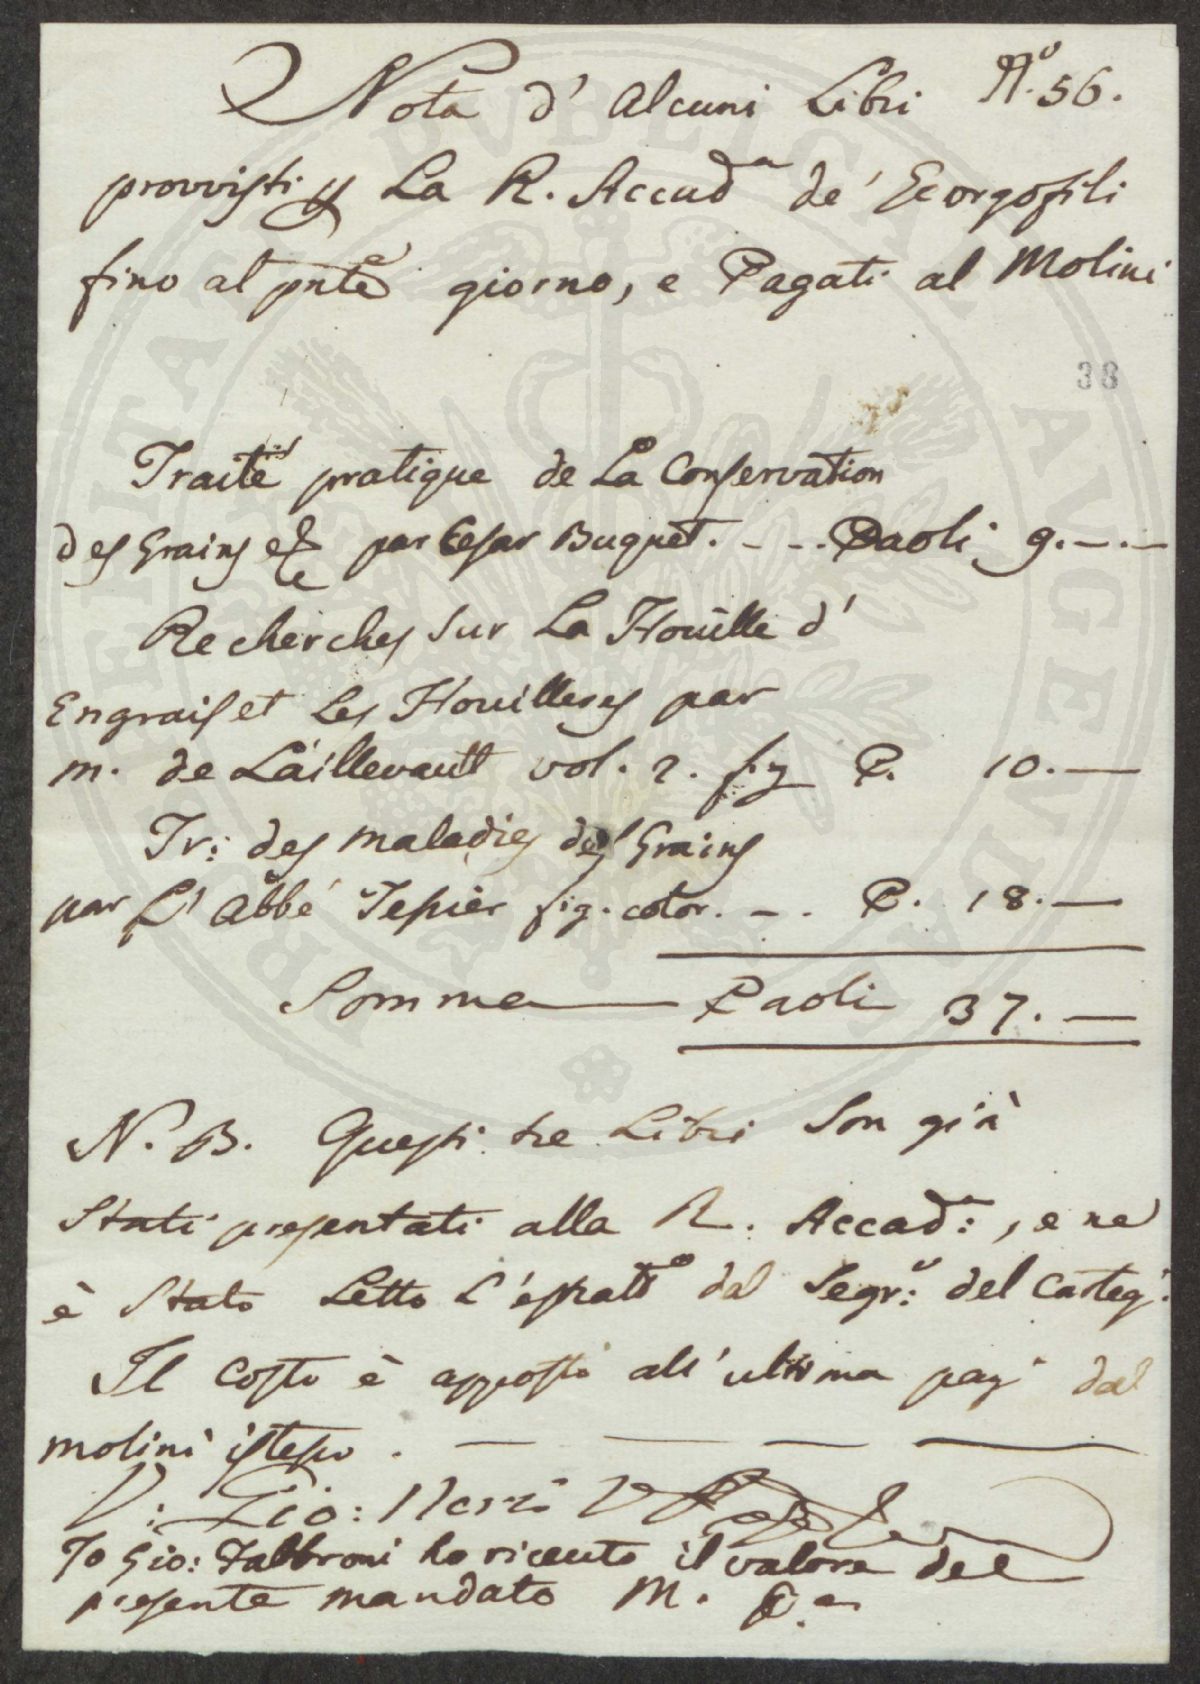 Nota d' Alcuni Libri N.º 56.
provvisti p La R. Accad.ª de' Georgofili
fino al pnte giorno, e Pagati al Molini
38
Traité pratique de La Conservation
des Grains etc par Cesar Buquet. - - . Paoli 9.-.-
Recherches sur La Houille d'
Engrais et Les Houilleres par
m. de Laillevault vol. 2. fig P. 10.-
Tr: des maladies des Grains
par L' Abbé Tessier fig. color. - . P. 18.-
Somma Paoli 37.-
N. B. Questi tre Libri Son già
Stati presentati alla R. Accad:ª, e ne
è Stato Letto L'estratto dal Segr:º del Carteg:
Il Costo è apposto all' ultima pag: dal
molini istesso. - - - -
V: Gio: Neri
Io Gio: Fabbroni ho ricevuto il valore del
presente mandato M. P.ª